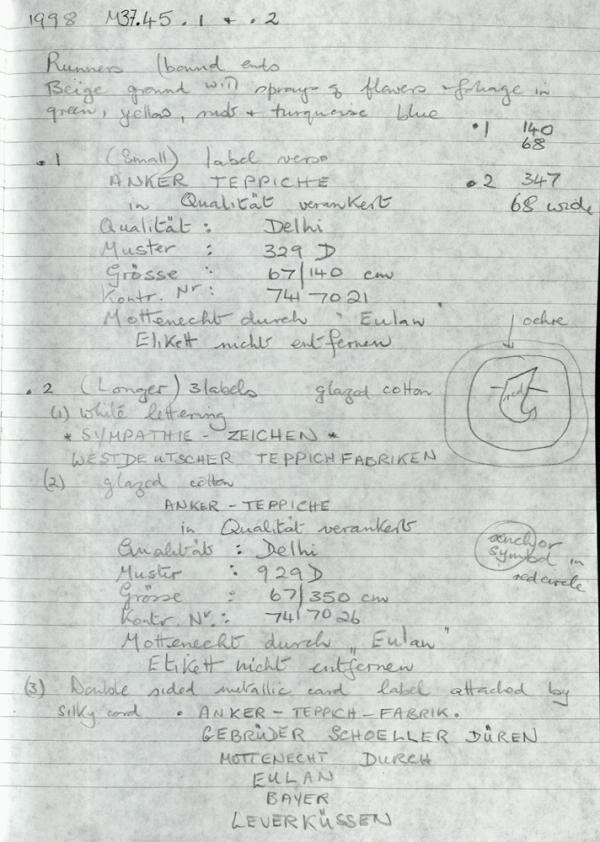 1998 M37.45 .1 + .2
Runners (bound ends
Beige ground with sprays of flowers + foliage in
green, yellow, reds + turquoise blue
.1 140
68
.1 (Small) label verso
ANKER TEPPICHE
.2 347
in Qualität verankert
68 wide
Qualität : Delhi
Muster : 329 D
Grösse : 67/140 cm
Kontr. Nr: 74/7021
Mottenecht durch "Eulan"
ochre
Etikett nicht entfernen
.2 (Longer) 3 labels glazed cotton
red
(1) White lettering
* SYMPATHIE - ZEICHEN *
WESTDEUTSCHER TEPPICHFABRIKEN
(2) glazed cotton
ANKER - TEPPICHE
in Qualität verankert
anchor
symbol in
red circle
Qualität : Delhi
Muster : 929 D
Grösse : 67/350 cm
Kontr. Nr.: 74/7026
Mottenecht durch "Eulan"
Etikett nicht entfernen
(3) Double sided metallic card label attached by
silky cord . ANKER - TEPPICH - FABRIK.
GEBRÜDER SCHOELLER DÜREN
MOTTENECHT DURCH
EULAN
BAYER
LEVERKÜSSEN